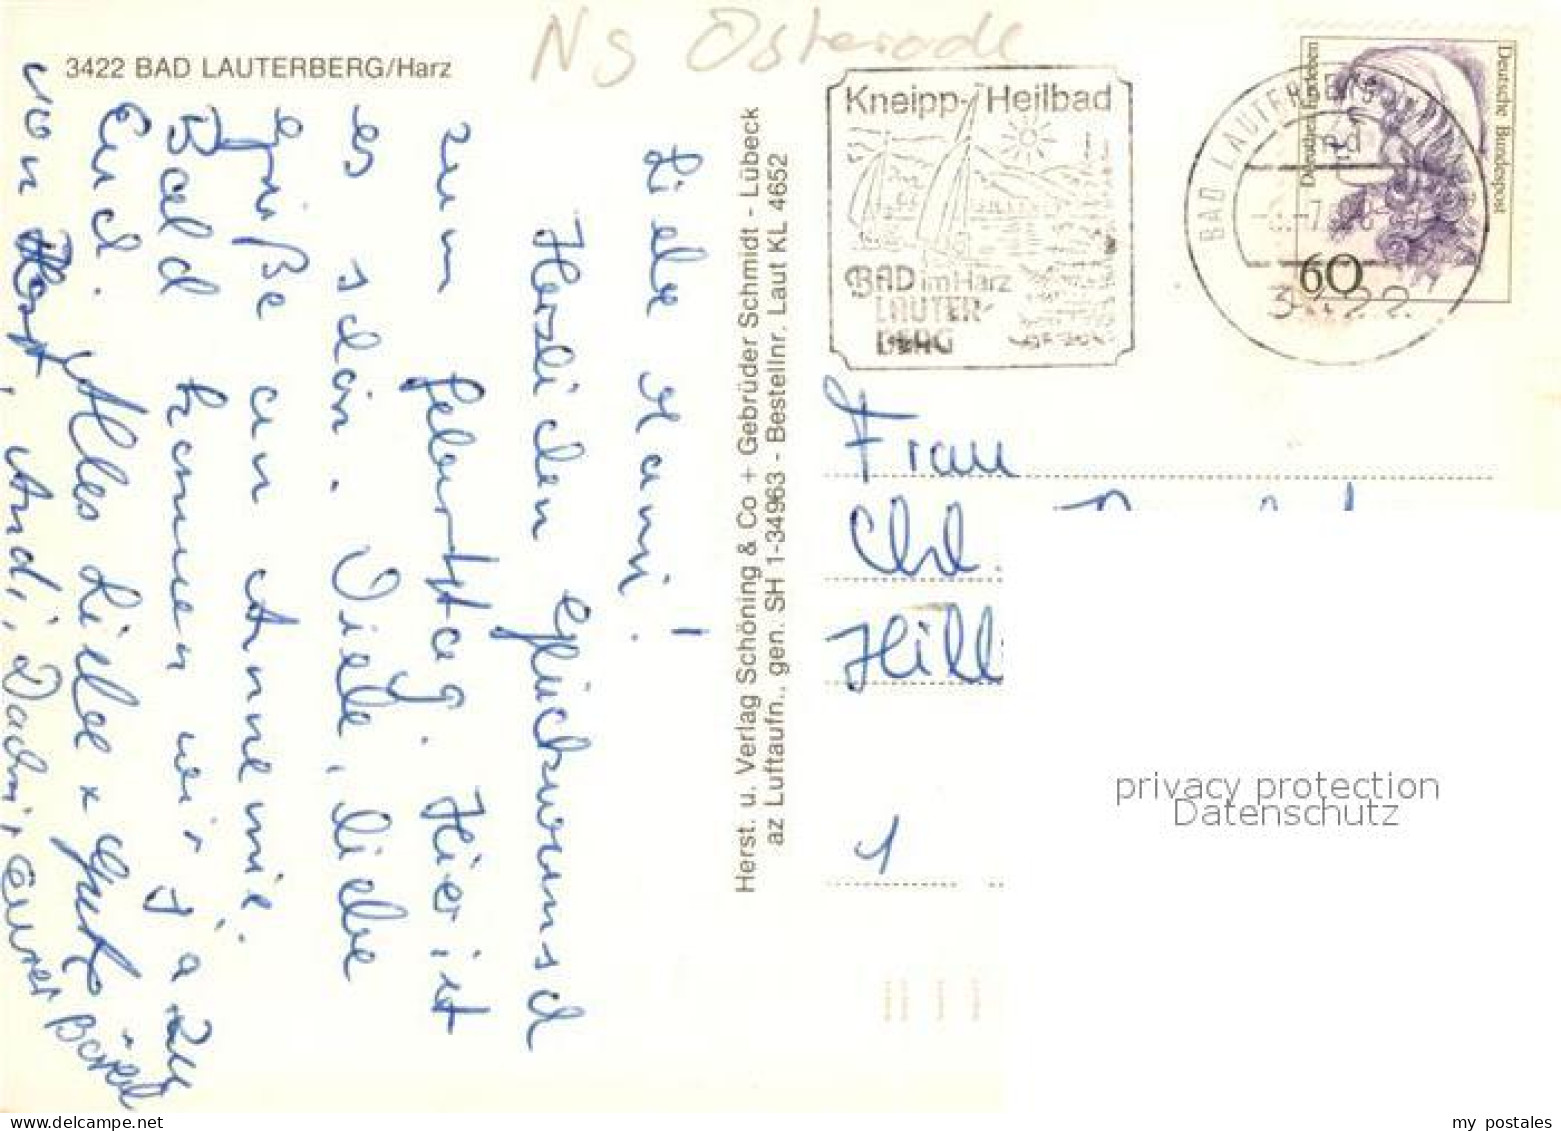 Ns Osterode
3422 BAD LAUTERBERG/Harz
Liebe Mami!
Herzlichen Glückwunsch
zum Geburtstag. Hier ist
es schön. Viele, liebe
Grüße an Annemie.
Bald kommen wir ja zu
Euch. Alles Liebe + Gute
von Horst, Andi, Dadmi + Eurer Bärbel
Herst. u. Verlag Schöning & Co + Gebrüder Schmidt - Lübeck
az Luftaufn., gen. SH 1-34963 - Bestellnr. Laut KL 4652
Kneipp-Heilbad
BAD im Harz
LAUTER-
BERG
BAD LAUTERBERG
3422
Deutsche Bundespost
Dorothea Erxleben
60
Frau
Chr.
Hill
1
privacy protection
Datenschutz
my postales